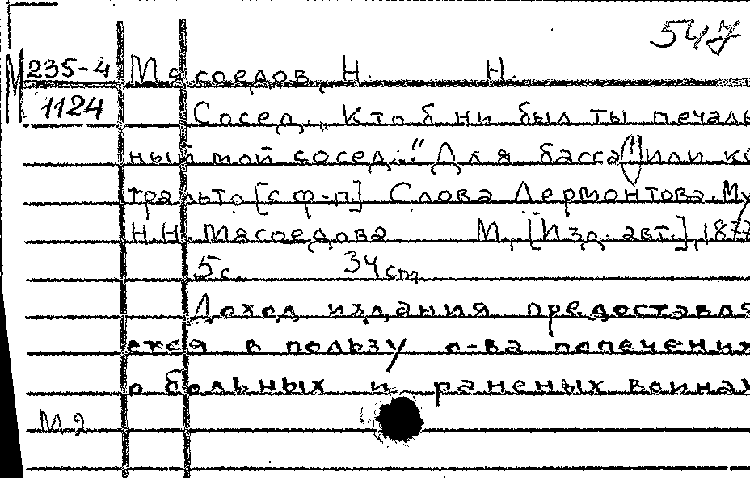 547
М 235-4 Мясоедов, Н. Н.
1124 Сосед. „Кто б ни был ты печаль
ный мой сосед..." Для басса (!) или ко
тральто [с ф-п] Слова Лермонтова. Му
Н.Н. Мясоедова М., [Изд. авт.], 187
5с. 34 см
Доход издания предоставля
ется в пользу о-ва попечения
о больных и раненых воинах